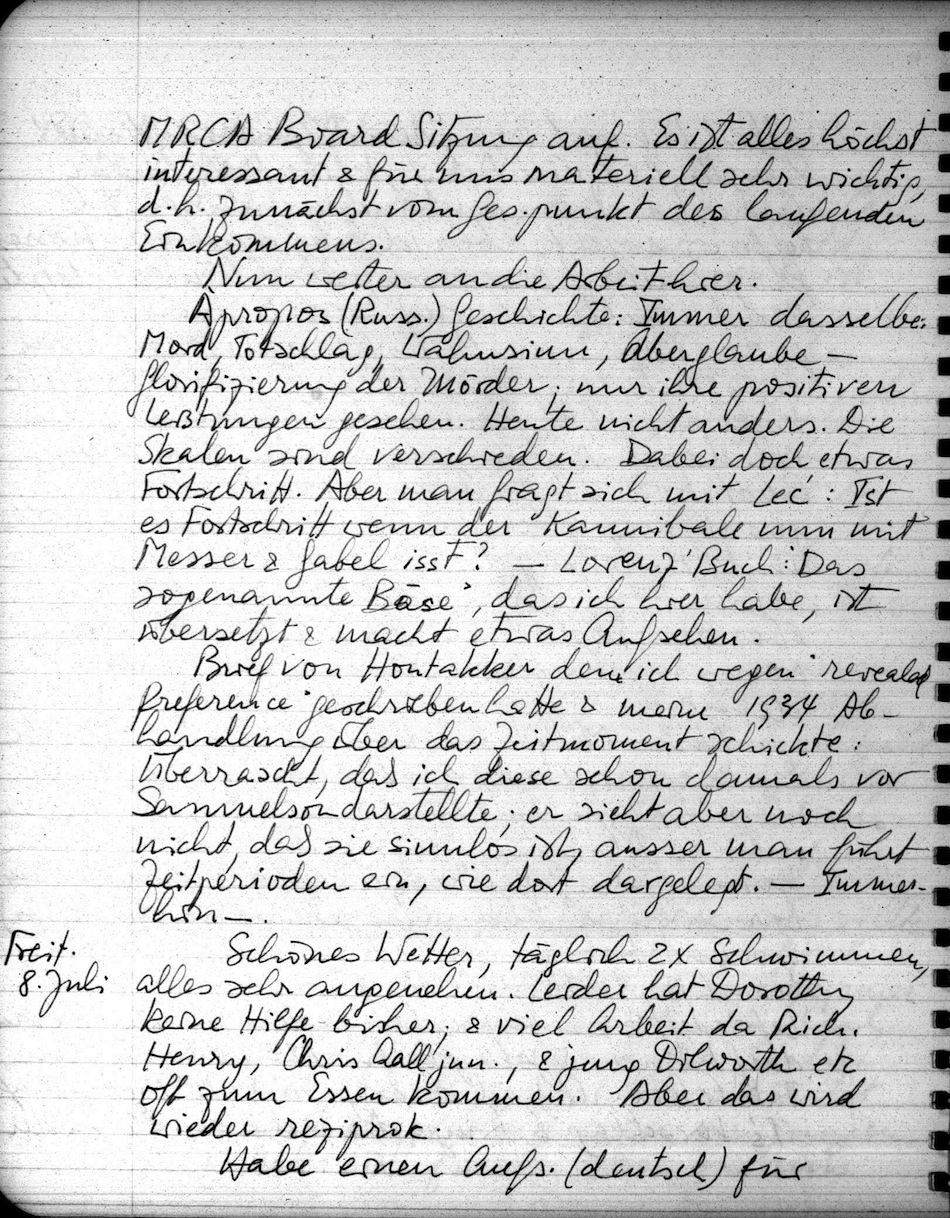 MRCA Board Sitzung auf. Es ist alles höchst
interessant & für uns materiell sehr wichtig,
d.h. zunächst vom Ges.punkt des laufenden
Einkommens.
Nun weiter an die Arbeit hier.
Apropos (Russ.) Geschichte: Immer dasselbe:
Mord, Totschlag, Wahnsinn, Aberglaube –
Glorifizierung der Mörder; nur ihre positiven
Leistungen gesehen. Heute nicht anders. Die
Skalen sind verschieden. Dabei doch etwas
Fortschritt. Aber man fragt sich mit Lec: Ist
es Fortschritt wenn der Kannibale nun mit
Messer & Gabel isst? – Lorenz' Buch: Das
sogenannte Böse', das ich hier habe, ist
übersetzt & macht etwas Aufsehen.
Brief von Houtakker dem ich wegen "revealed
preference" geschrieben hatte & meine 1934 Ab-
handlung über das Zeitmoment schickte:
Überrascht, daß ich diese schon damals vor
Samuelson darstellte; er sieht aber noch
nicht, daß sie sinnlos ist, ausser man führt
Zeitperioden ein, wie dort dargelegt. – Immer-
hin –.
Freit.
8. Juli
Schönes Wetter, täglich 2x Schwimmen,
alles sehr angenehm. Leider hat Dorothy
keine Hilfe bisher; & viel Arbeit da Rich.
Henry, Chris Aall jun., & jung Dilworth etc
oft zum Essen kommen. Aber das wird
wieder reziprok.
Habe einen Aufs. (deutsch) für